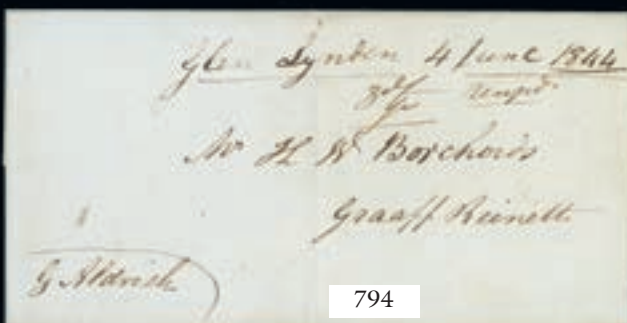 Glen Lynden 4 June 1844
8d unpd.
Mr H W Borcherds
Graaff Reinett
G Aldrich
794